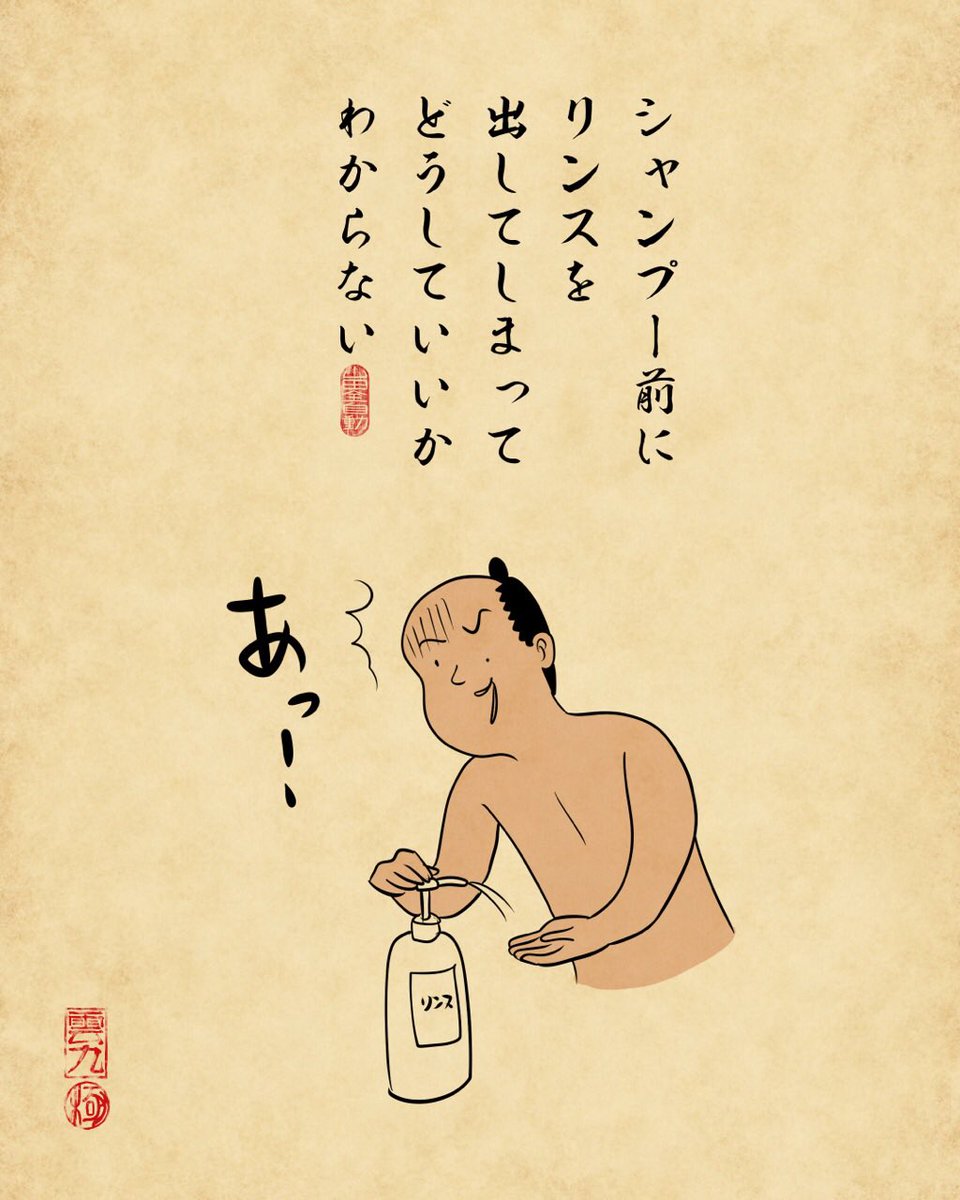 シャンプー前に
リンスを
出してしまって
どうしていいか
わからない
あっー、
リンス